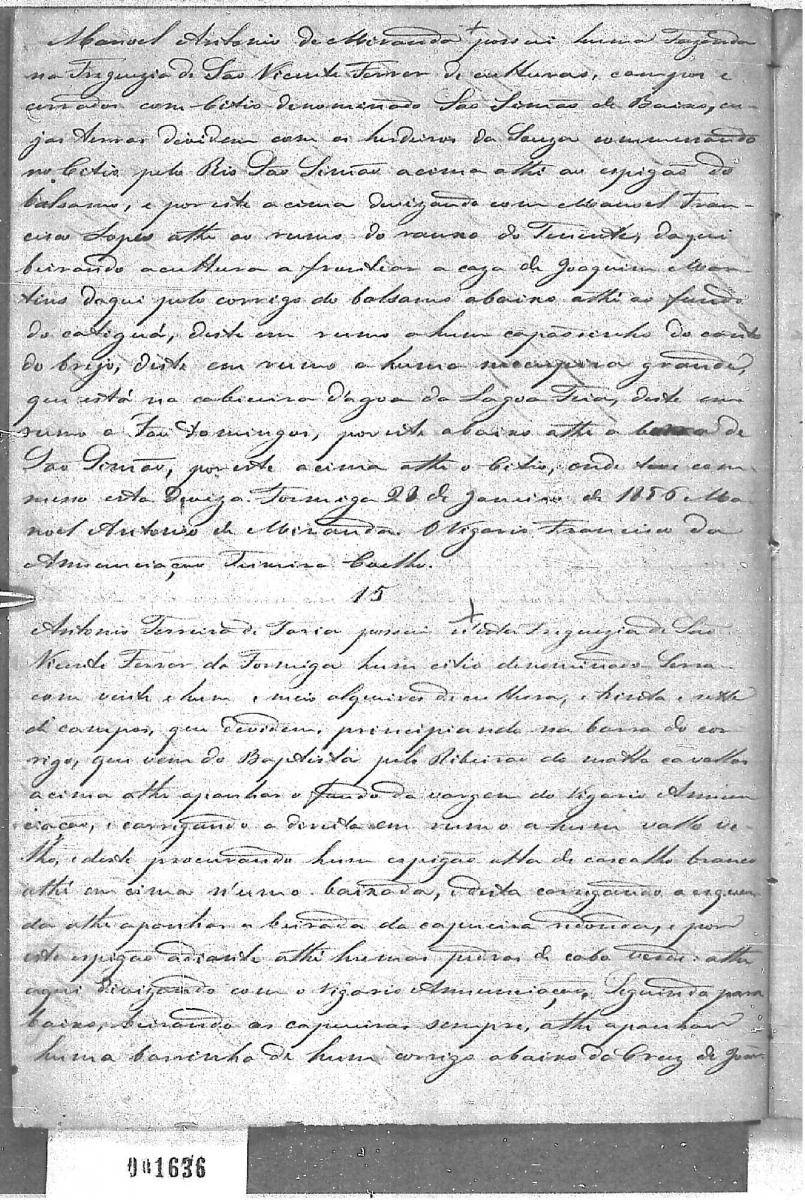 Manoel Antonio de Miranda + possui huma Fazenda
na Freguezia de São Vicente Ferrer de culturas, campos e
cerrados com Citio denominado São Simão de Baixo, cu-
jas terras dividem com os herdeiros da Souza commesando
no Citio pelo Rio São Simão acima athe ao espigão do
balsamo, e por este acima devizando com Manoel Fran-
cisco Lopes athe ao rumo do ranxo do Tenente, daqui
beirando a cultura a frontiar a caza de Joaquim Mar-
tins daqui pelo corrigo do balsamo abaixo athe ao fundo
do catiguá, deste em rumo a hum capãosinho do canto
do brejo, deste em rumo a huma sucupira grande,
que está na cabiceira d'agoa da Lagoa Feia, deste em
rumo a São Domingos, por este abaixo athe a barra de
São Simão, por este acima athe o Citio, onde teve com
meso esta Deviza. Formiga 28 de Janeiro de 1856 Ma-
noel Antonio de Miranda. O Vigario Francisco da
Annunciação Teixeira Coelho.
15
Antonio Ferreira de Faria possui + nesta Freguezia de São
Vicente Ferrer da Formiga hum citio denominado Serra
com vinte e hum e meio alqueires de culthura, e trinta e sette
de campos, que devidem, principiando na barra do cor-
rigo, que vem do Baptista pelo Ribeirão do matta cavallos
acima athe apanhar o fundo da vargem do Vigario Annun
ciação, e carregando a direita em rumo a hum vallo ve-
lho, e deste procurando hum espigão alta de cascalho branco
athe em cima n'umo baixada, e desta carregando a esquer-
da athe apanhar a beirada da capueira redonda, e por
este espigão adiante athe humas pedras de cabo verde athe
aqui divizando com o Vigario Annunciação, Seguindo para
baixo, beirando as capueiras sempre, athe apanhar
huma barrinha de hum corrigo abaixo da Cruz de João
001636